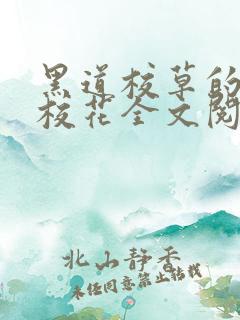 黑道校草的
校花全文阅
北山静香
未经同意禁止转载